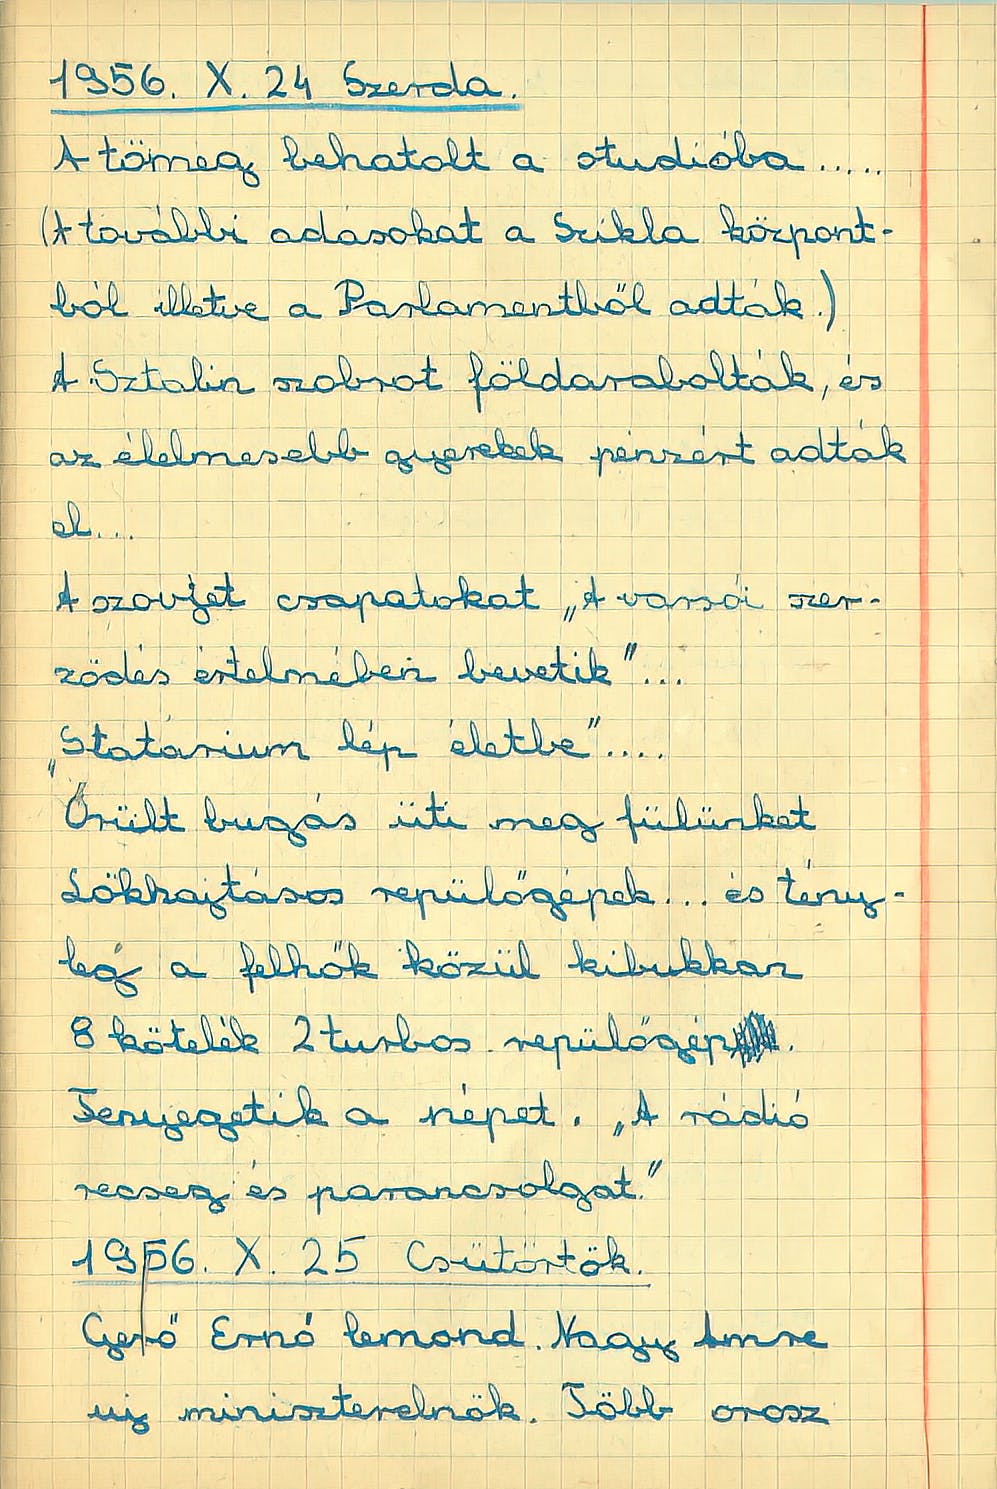 1956. X. 24 Szerda.
A tömeg behatolt a studióba.....
(A további adásokat a Szikla központ-
ból illetve a Parlamentből adták.)
A Sztalin szobrot földarabolták, és
az élelmesebb gyerekek pénzért adták
el...
A szovjet csapatokat „A varsói szer-
ződés értelmében bevetik"...
„Statárium lép életbe"....
Őrült bugás üti meg fülünket
Lökhajtásos repülőgépek... és tény-
leg a felhők közül kibukkan
8 kötelék 2 turbos repülőgép.
Fenyegetik a népet. „A rádió
recseg és parancsolgat."
1956. X. 25 Csütörtök.
Gerő Ernő lemond. Nagy Imre
uj miniszterelnök. Több orosz